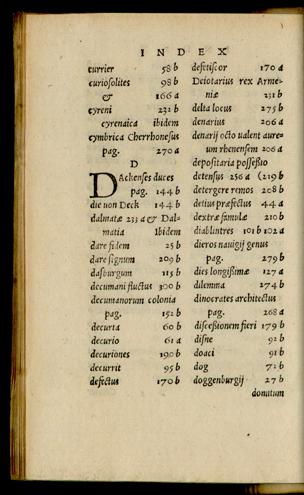 INDEX
currier 58 b
curiosolites 98 b
& 166 a
cyreni 232 b
cyrenaica ibidem
cymbrica Cherrhonesus
pag. 270 a
D
DAchenses duces
pag. 144 b
die von Deck 144 b
dalmatæ 233 a & Dal-
matia ibidem
dare fidem 25 b
dare signum 209 b
dasburgum 115 b
decumani fluctus 300 b
decumanorum colonia
pag. 152 b
decuria 60 b
decurio 61 a
decuriones 190 b
decurrit 95 b
defectus 170 b
defetiscor 170 a
Deiotarius rex Arme-
niæ 231 b
delta locus 275 b
denarius 206 a
denarij octo ualent aure-
um rhenensem 206 a
depositaria possessio
detensus 256 a (219 b
detergere remos 208 b
detius præfectus 44 a
dextræ famulæ 210 b
diablintres 101 b 102 a
dieros nauigij genus
pag. 279 b
dies longissimæ 127 a
dilemma 274 b
dinocrates architectus
pag. 268 a
discessionem fieri 179 b
disne 92 b
doaci 91 b
dog 72 b
doggenburgij 27 b
donitum